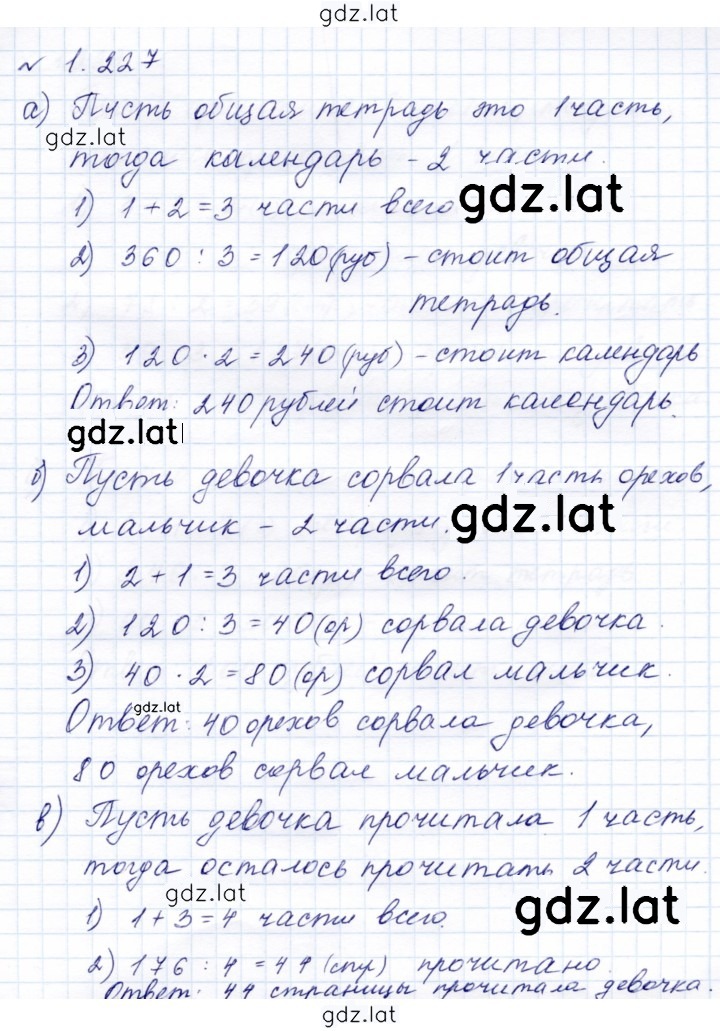 gdz.lat
№ 1.227
а) Пусть общая тетрадь это 1 часть,
gdz.lat
тогда календарь - 2 части.
1) 1 + 2 = 3 части всего
gdz.lat
2) 360 : 3 = 120 (руб) - стоит общая
тетрадь.
3) 120 · 2 = 240 (руб) - стоит календарь
Ответ: 240 рублей стоит календарь.
gdz.lat
б) Пусть девочка сорвала 1 часть орехов,
мальчик - 2 части.
gdz.lat
1) 2 + 1 = 3 части всего.
2) 120 : 3 = 40 (ор) сорвала девочка.
3) 40 · 2 = 80 (ор) сорвал мальчик.
gdz.lat
Ответ: 40 орехов сорвала девочка,
80 орехов сорвал мальчик.
в) Пусть девочка прочитала 1 часть,
тогда осталось прочитать 2 части.
gdz.lat
gdz.lat
1) 1 + 3 = 4 части всего.
2) 176 : 4 = 44 (стр) прочитано.
Ответ: 44 страницы прочитала девочка.
gdz.lat